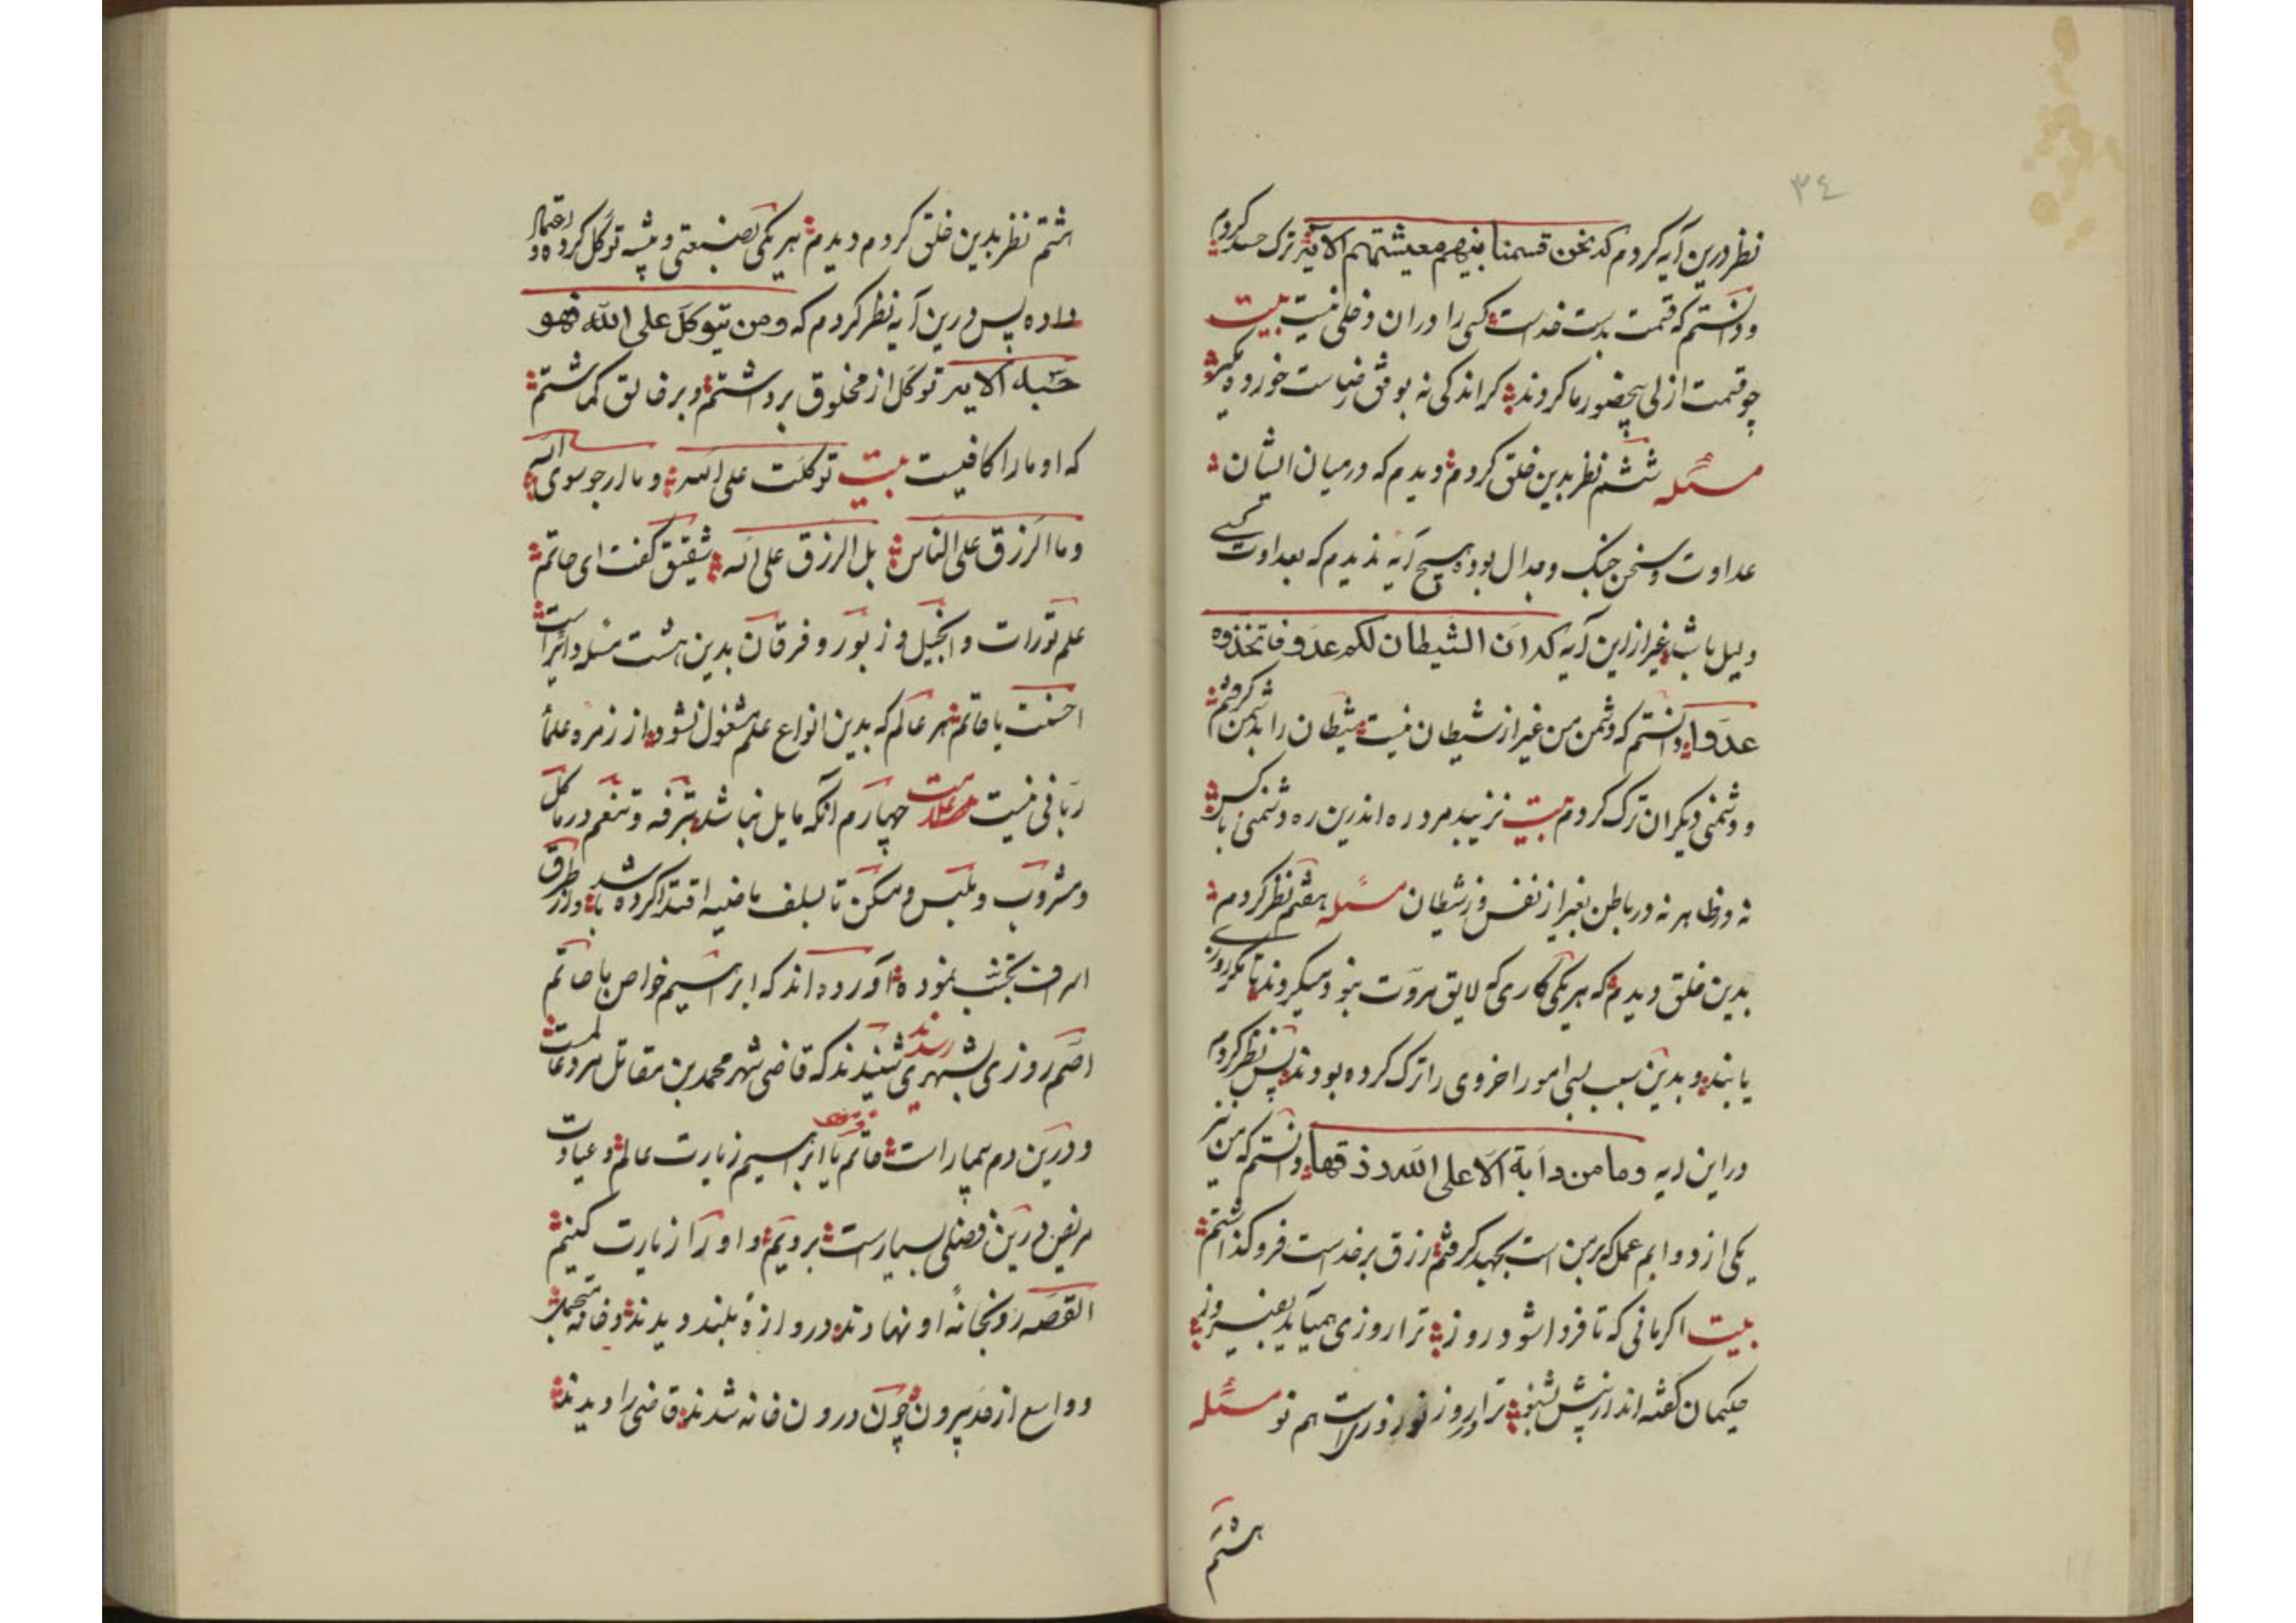 ٣٤
نظر درین آیه کردم که نحن قسمنا بینهم معیشتهم الآیة ترک حسد کردم
و دانستم که قسمت بدست خداست کسی را در ان دخلی نیست بیت
چو قسمت ازلی بیحضور ما کردند کر اندکی نه بوفق رضاست خورده مکیر
مسئله ششم نظر بدین خلق کردم و دیدم که درمیان ایشان
عداوت و سخن جنک و جدال بوده هیچ آیه ندیدم که بعداوت کسی
دلیل باشد غیر از این آیه که ان الشیطان لکم عدو فاتخذوه
عدوا دانستم که دشمن من غیر از شیطان نیست شیطان را بدشمن کرفتم
و دشمنی دیکران ترک کردم بیت نزیبد مرد ره اندرین ره دشمنی با کس
نه در ظاهر نه در باطن بغیر از نفس و ز شیطان مسئله هفتم نظر کردم
بدین خلق دیدم که هر یکی کاری که لایق مروت نبود میکردند تا مکر روزی
یابند و بدین سبب بسی امور اخروی را ترک کرده بودند پس نظر کردم
در این ایه وما من دابة الا علی الله رزقها دانستم که من نیز
یکی از دوابم عمل که بر من است بجهد کرفتم رزق بر خداست فرو کذاشتم
بیت اکر مانی که تا فردا شود روز ترا روزی همیآید بفیروز
حکیمان کفته اند از پیش شنو ترا در روز نو روزیست هم نو مسئله
هشتم
هشتم نظر بدین خلق کردم و دیدم هر یکی بصنعتی و پیشه توکل کرده و اعتماد
داده پس درین آیه نظر کردم که ومن یتوکل علی الله فهو
حسبه الآیه توکل از مخلوق برداشتم و بر خالق کماشتم
که او مارا کافیست بیت توکلت علی الله وما ارجو سوی الله
وما الرزق علی الناس بل الرزق علی الله شقیق کفت ای حاتم
علم تورات و انجیل و زبور و فرقان بدین هشت مسئله دائر است
احسنت یا حاتم هر عالم که بدین انواع علم مشغول نشود از زمره علمأ
ربانی نیست علامت چهارم آنکه مایل نباشد بترفه و تنعم در ماکل
و مشروب و ملبس و مسکن تا بسلف ماضیه اقتدا کرده باشد و از طرق
اسراف تجنب نموده آورده اند که ابراهیم خواص با حاتم
اصم روزی بشهری رسیدند شنیدند که قاضی شهر محمد بن مقاتل مرد عالمست
و درین دم بیمار است حاتم با ابراهیم زیارت عالم و عیادت
مریض درین فضلی بسیارست برویم و او را زیارت کنیم
القصه رو بخانهٔ او نهادند دروازهٔ بلند دیدند و خانه متجمل
و واسع از حد بیرون چون درون خانه شدند قاضی را دیدند